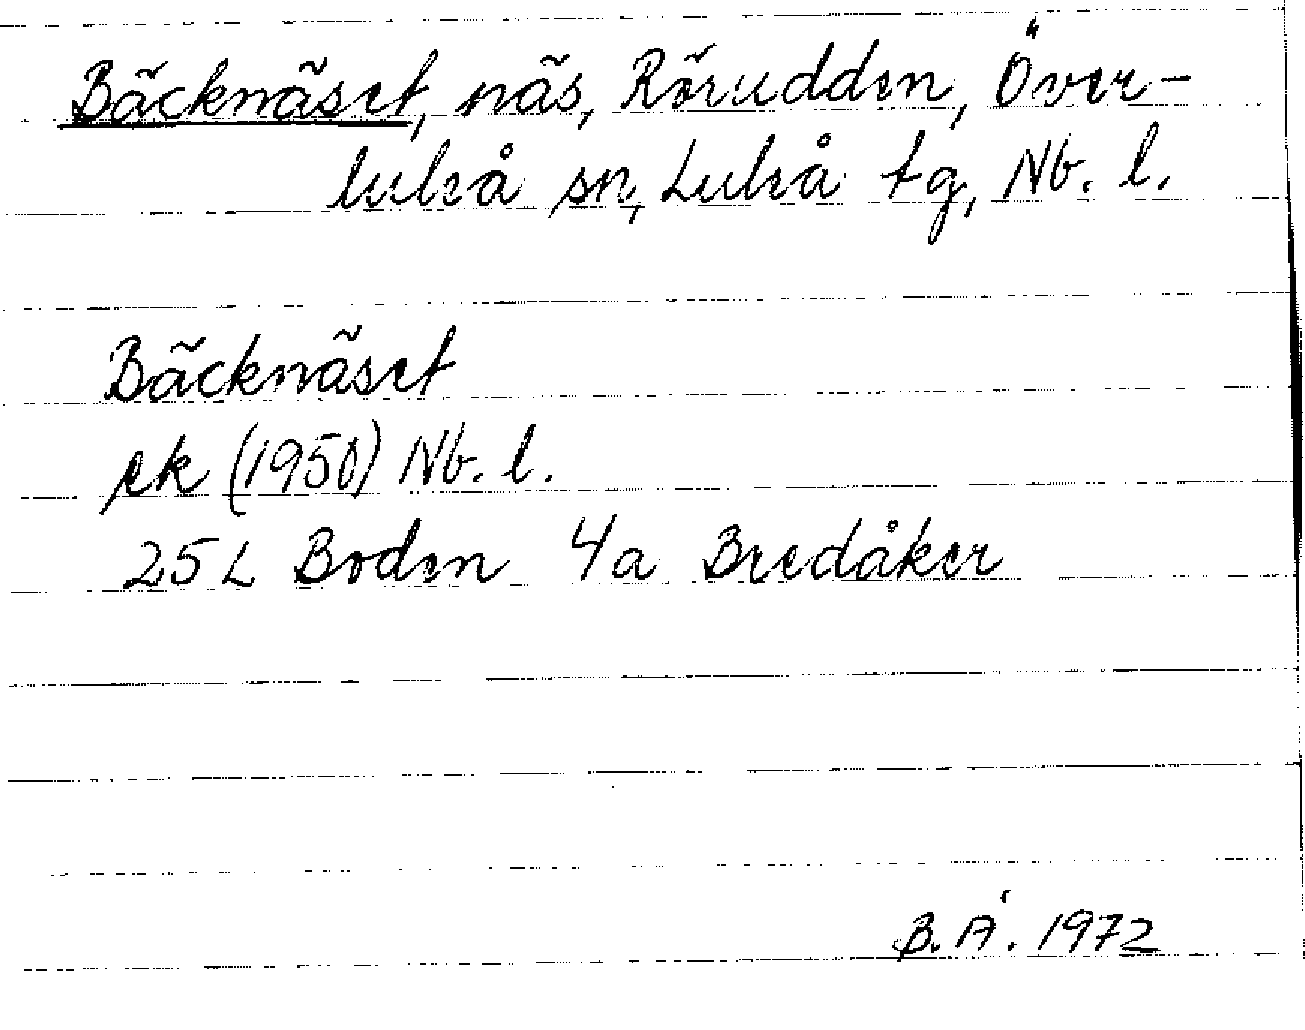 Bäcknäset, näs, Rörudden, Över-
luleå sn, Luleå tg, Nb. l.
Bäcknäset
ek (1950) Nb. l.
25 L Boden 4a Bredåker
B.Å. 1972